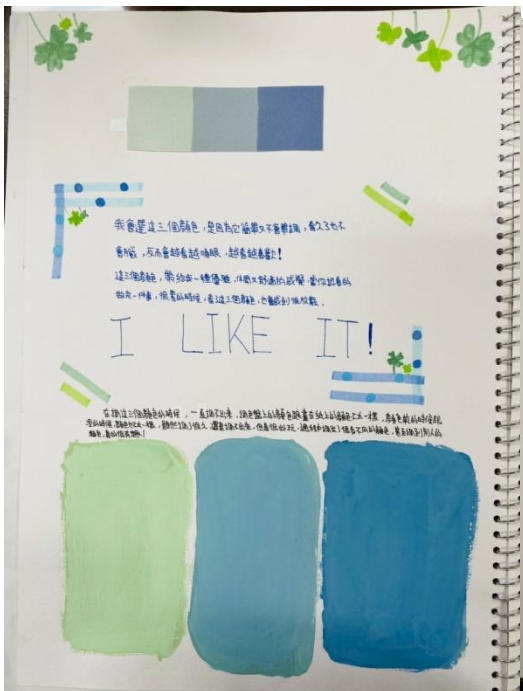 我會選這三個顏色，是因為它簡單又不會單調，看久了也不
會膩，反而會越看越順眼，越看越喜歡！
這三個顏色，帶給我一種優雅、休閒又舒適的感覺，當你認真的
做完一件事，很累的時候，看這三個顏色，也會感到很放鬆．
I LIKE IT!
在調這三個顏色的時候，一直調不出來，調色盤上的顏色跟畫在紙上的顏色不太一樣，
的時候，顏色也不太一樣，雖然調了很久，還是調不出來，但是很好玩，過程中調出了很多不同的顏色，甚至調到別人的
顏色，真的很有趣！